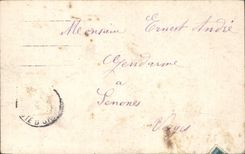 Monsieur Ernest André
Gendarme
à
Senones
Vosges